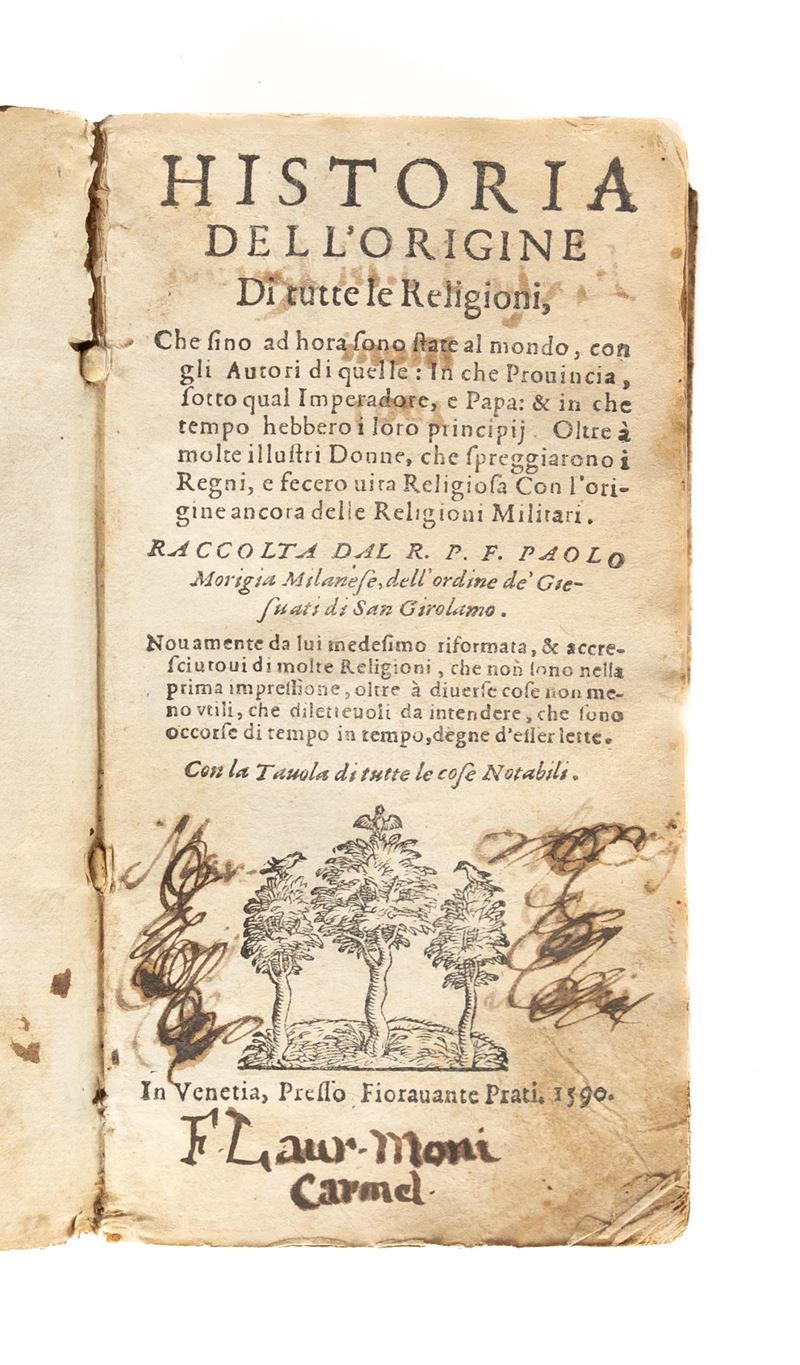 HISTORIA
DELL'ORIGINE
Di tutte le Religioni,
Che ſino ad hora ſono ſtate al mondo, con
gli Autori di quelle: In che Prouincia,
ſotto qual Imperadore, e Papa: & in che
tempo hebbero i loro principij. Oltre à
molte illuſtri Donne, che ſpreggiarono i
Regni, e fecero uita Religioſa Con l'ori-
gine ancora delle Religioni Militari.
RACCOLTA DAL R. P. F. PAOLO
Morigia Milaneſe, dell'ordine de' Gie-
ſuati di San Girolamo.
Nouamente da lui medeſimo riformata, & accre-
ſciutoui di molte Religioni, che non ſono nella
prima impreſſione, oltre à diuerſe coſe non me-
no vtili, che diletteuoli da intendere, che ſono
occorſe di tempo in tempo, degne d'eſſer lette.
Con la Tauola di tutte le coſe Notabili.
In Venetia, Preſſo Fiorauante Prati. 1590.
F. Laur. Moni
Carmel.